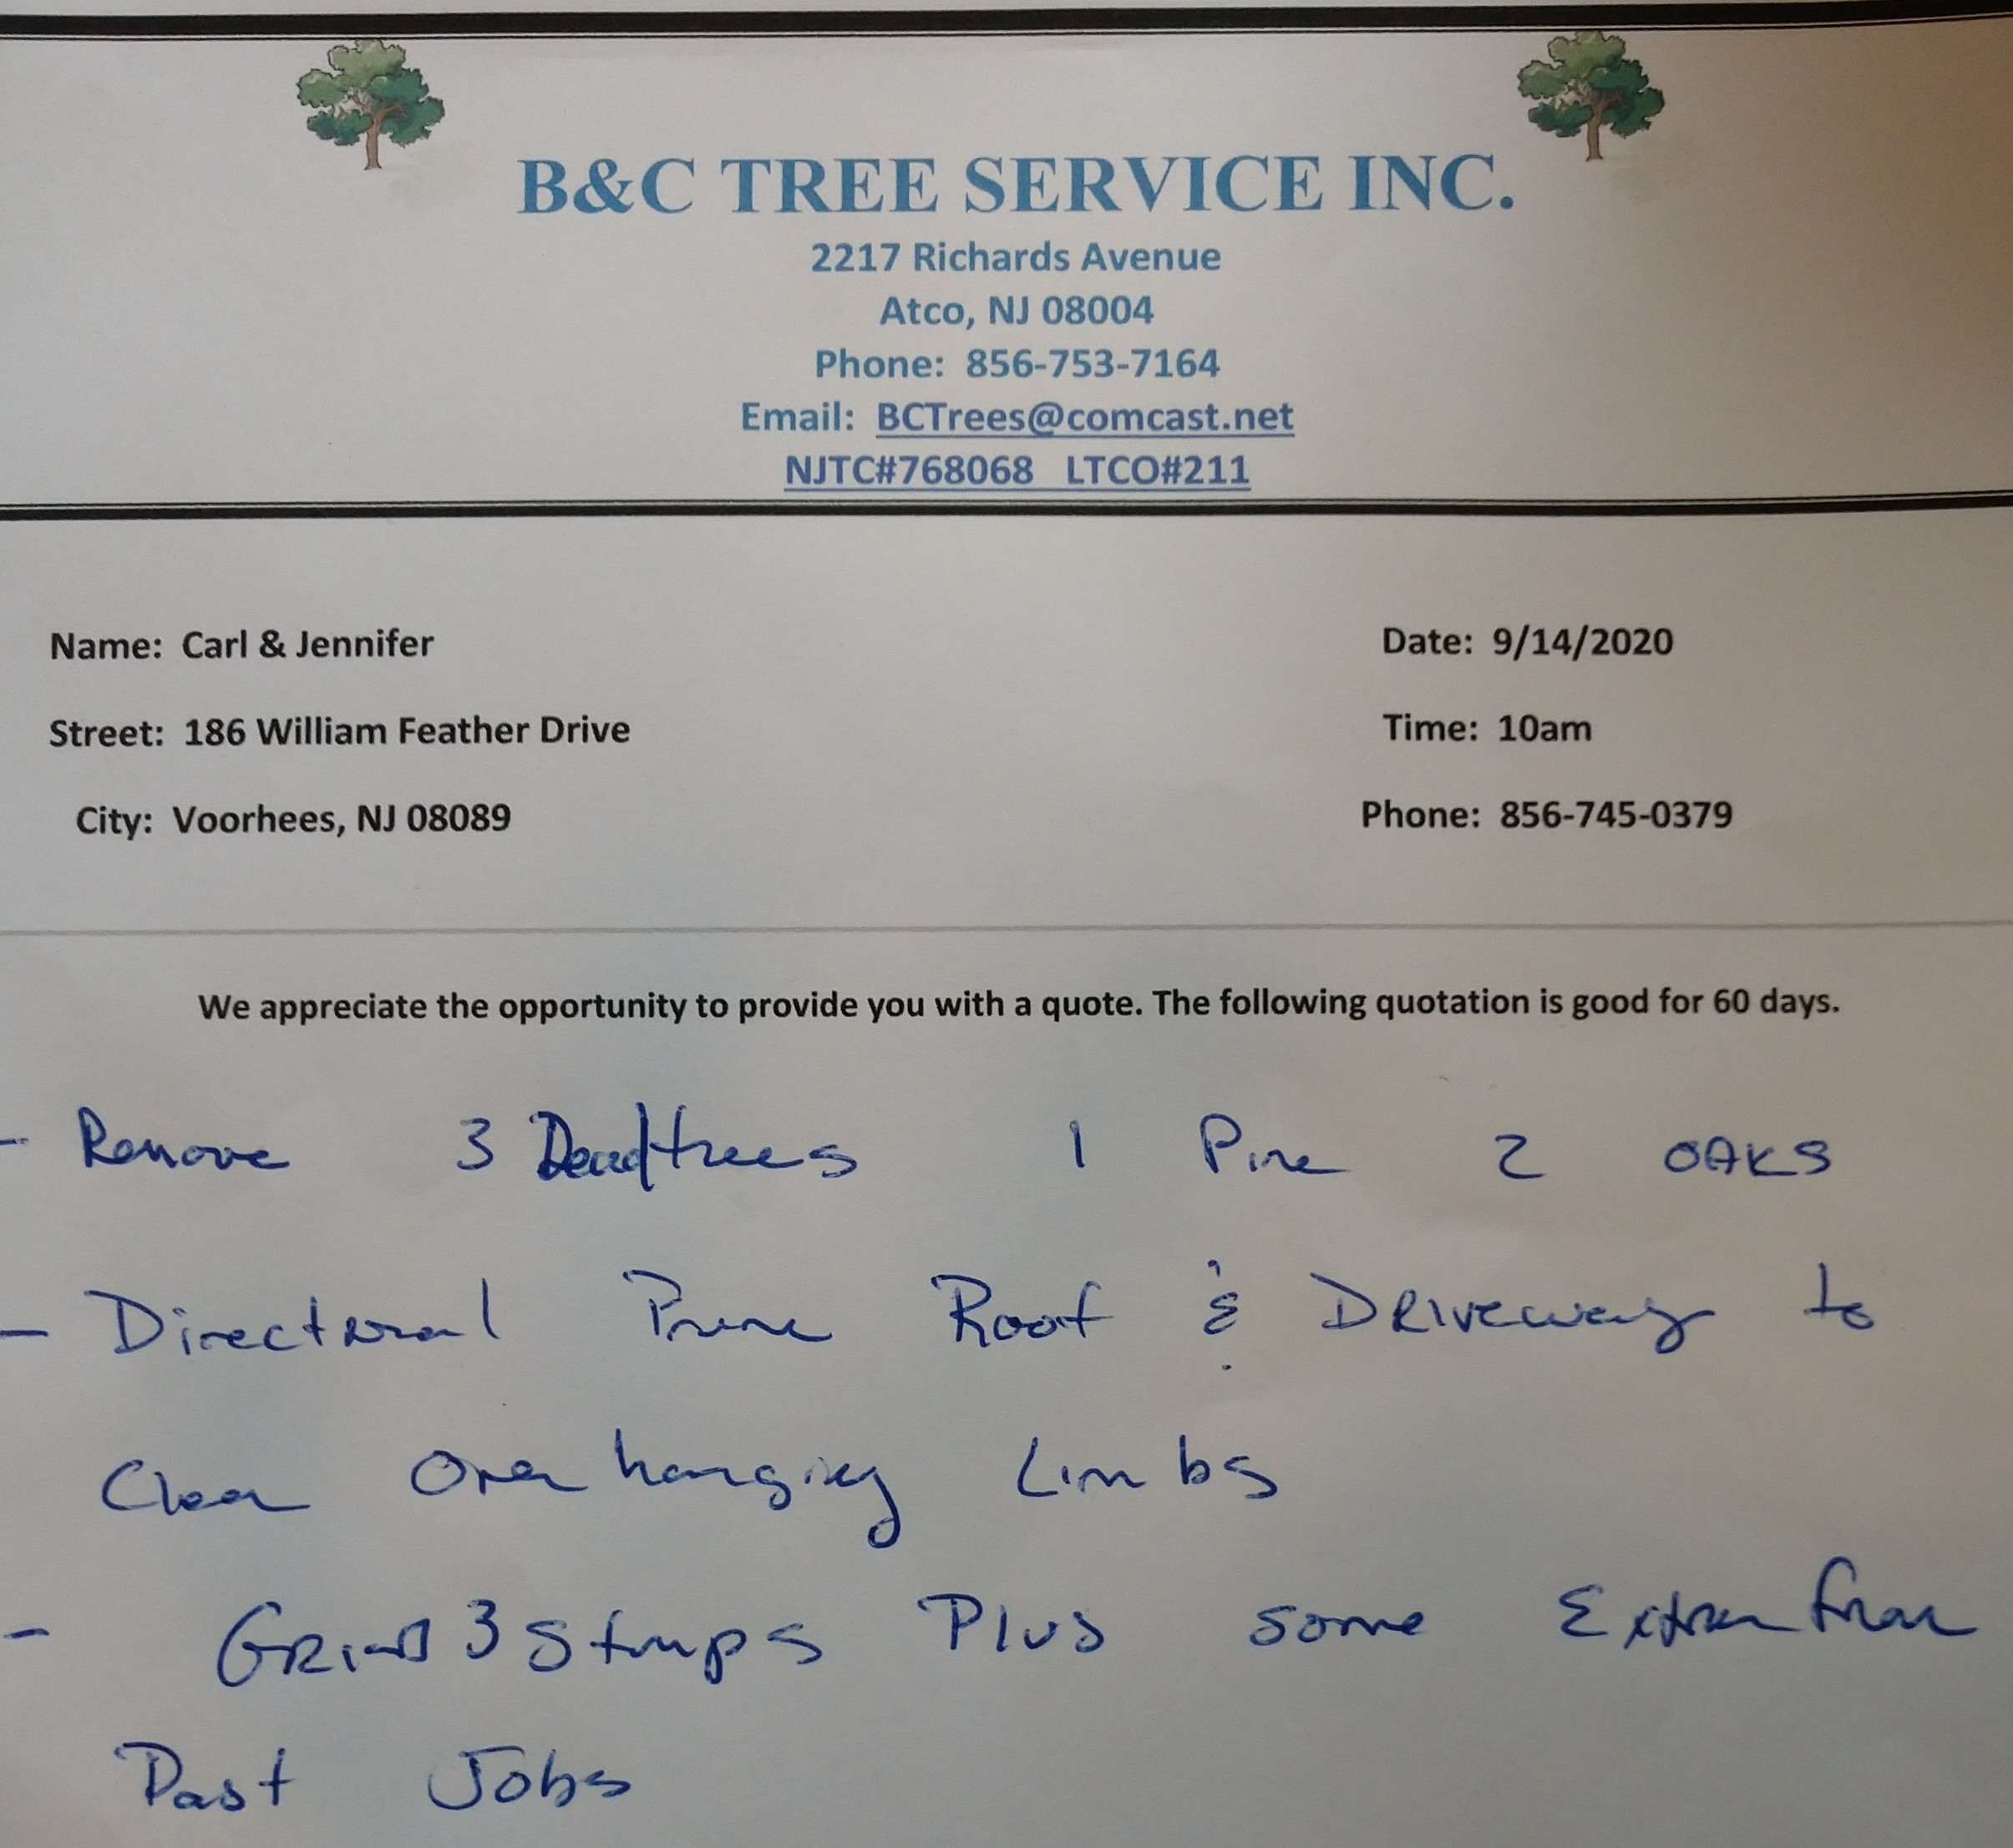 B&C TREE SERVICE INC.
2217 Richards Avenue
Atco, NJ 08004
Phone: 856-753-7164
Email: BCTrees@comcast.net
NJTC#768068 LTCO#211
Name: Carl & Jennifer
Date: 9/14/2020
Street: 186 William Feather Drive
Time: 10am
City: Voorhees, NJ 08089
Phone: 856-745-0379
We appreciate the opportunity to provide you with a quote. The following quotation is good for 60 days.
- Remove 3 Dead trees 1 Pine 2 OAKS
- Directional Prune Roof & Driveway to
Clear Over hanging Limbs
- Grind 3 Stumps Plus some Extra from
Past Jobs